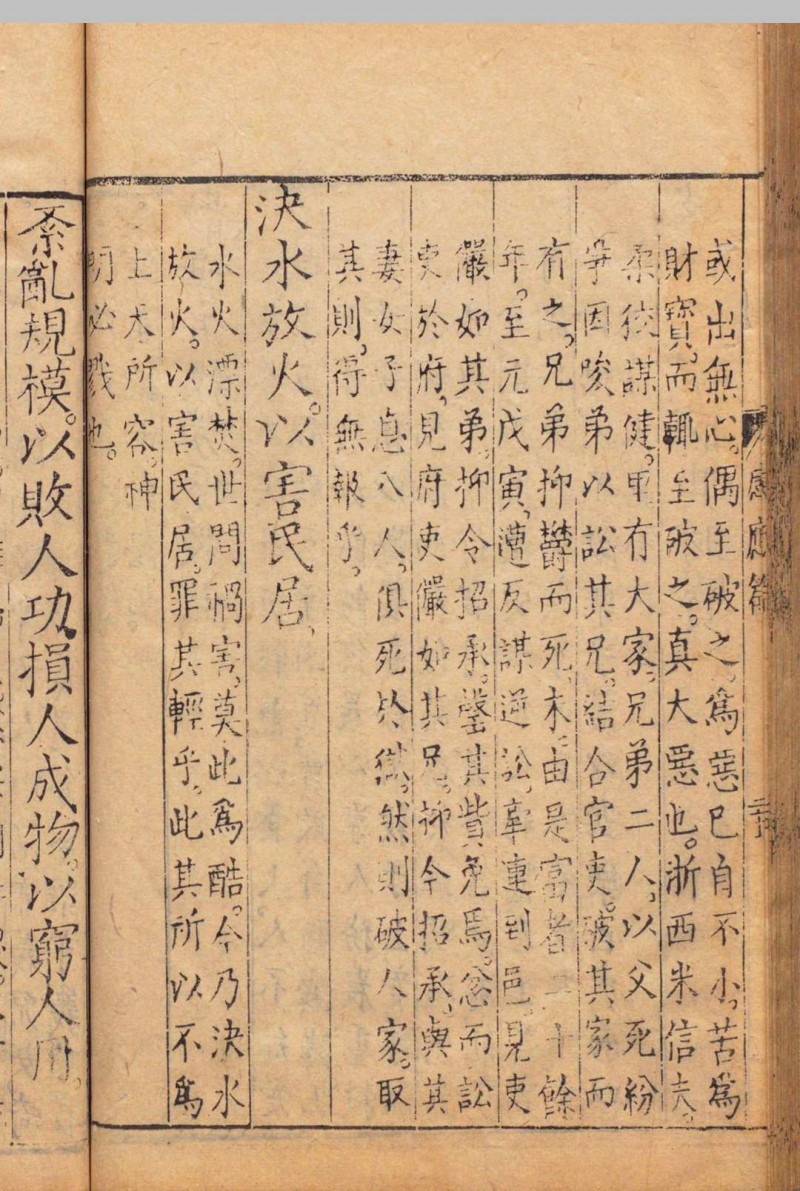 感應篇
或出無心。偶至破之。為惡已自不小。苦為
財寶。而輒至破之。真大惡也。浙西米信夫。
柔狡謀健。里有大家。兄弟二人。以父死紛
爭。因唆弟以訟其兄。結合官吏。破其家而
有之。兄弟抑鬱而死。末由是富者二十餘
年。至元戊寅。遭反謀逆訟。牽連到邑。見吏
嚴如其弟。抑令招承。罄其貲免焉。忿而訟
吏於府。見府吏儼如其兄。抑令招承。與其
妻女子息八人。俱死於獄。然則破人家。取
其則。得無報乎。
決水放火。以害民居。
水火漂焚。世間禍害。莫此為酷。今乃決水
放火。以害民居。罪其輕乎。此其所以不為
上天所容。神
明必戮也。
紊亂規模。以敗人功。損人成物。以窮人用。